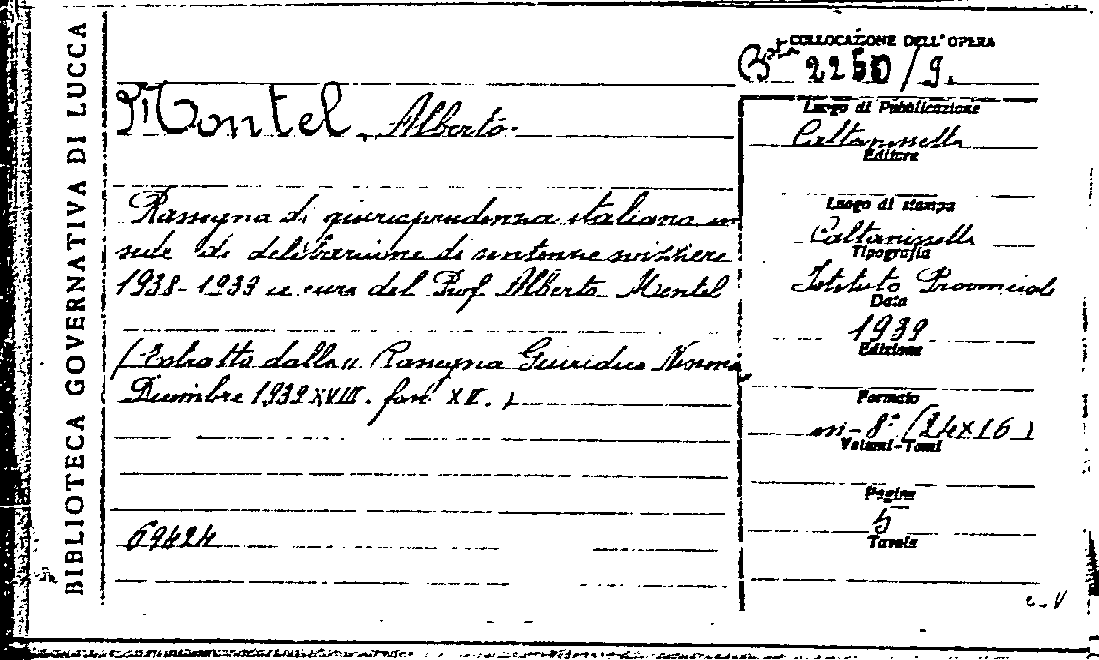 BIBLIOTECA GOVERNATIVA DI LUCCA
COLLOCAZIONE DELL'OPERA
Bta 2250/9.
Montel, Alberto.
Rassegna di giurisprudenza italiana in
sede di delibazione di sentenze svizzere
1938-1939 a cura del Prof. Alberto Montel
(Estratto dalla Rassegna Giuridica
Dicembre 1939 XVIII. fasc. XII.)
69424
Luogo di Pubblicazione
Caltanissetta
Editore
Luogo di stampa
Caltanissetta
Tipografia
Istituto Provinciale
Data
1939
Edizione
Formato
in-8° (24x16)
Volumi-Tomi
Pagine
5
Tavole